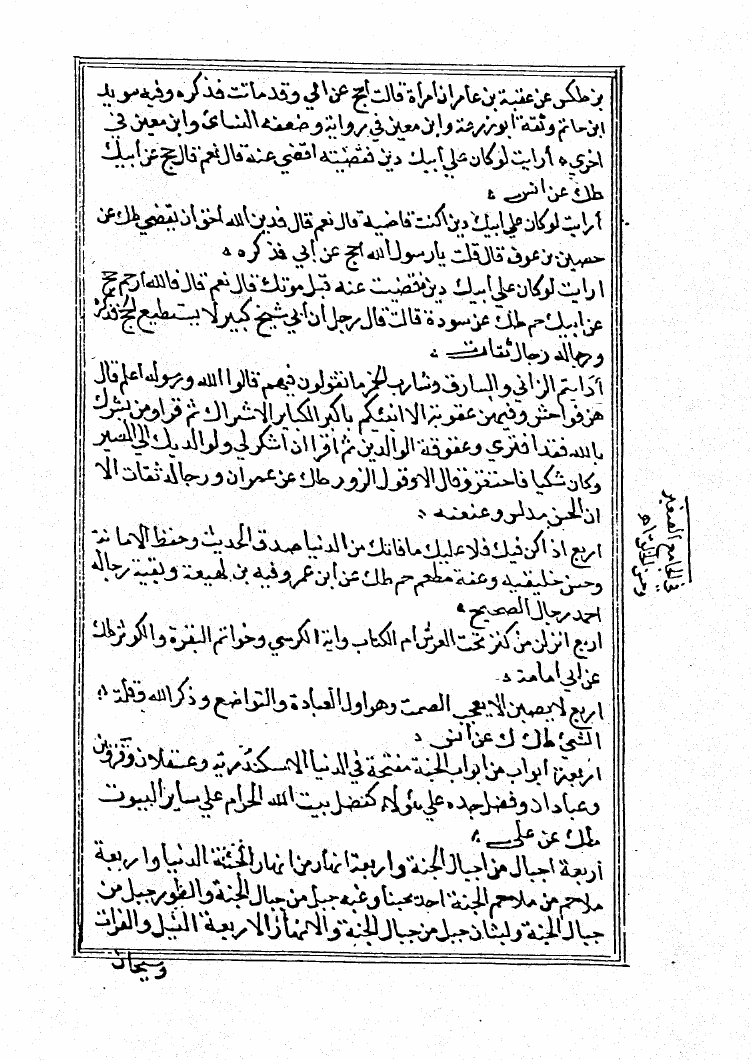 بن طكس عن عقبة بن عامر ان امرأة قالت أحج عن امي وقد ماتت فذكره وفيه سويد
ابن حاتم وثقة ابو زرعة وابن معين في رواية وضعفه النسائ وابن معين في
اخري ٥ أرايت لو كان علي أبيك دين فقضيته اقضي عنه قال نعم قال حج عن أبيك
طك عن انس ٥
أرايت لو كان علي ابيك دين أكنت قاضيه قال نعم قال فدين الله أحق ان يقضي طك عن
حصين بن عوف قال قلت يا رسول الله احج عن ابي فذكره ٥
ارايت لو كان علي أبيك دين فقضيت عنه قبل موتك قال نعم قال فالله أرحم حج
عن ابيك حم طك عن سودة قالت قال رجل ان أبي شيخ كبير لا يستطيع الحج فذكره
ورجاله رجال ثقات ٥
أرايتم الزاني والسارق وشارب الخمر ما تقولون فيهم قالوا الله ورسوله أعلم قال
هن فواحش وفيهن عقوبة الا انبئكم باكبر الكباير الاشراك ثم قرا ومن يشرك
بالله فقد افتري وعقوقة الوالدين ثم أقرا ان اشكر لي ولوالديك الي المصير
وكان متكيا فاحتفز وقال الا وقول الزور طك عن عمران ورجاله ثقات الا
ان الحسن مدلس وعنعنه ٥
اربع اذا كن فيك فلا عليك ما فاتك من الدنيا صدق الحديث وحفظ الامانة
وحسن خليقيه وعفة مطعم حم طك عن ابن عمر وفيه بن لهيعة وبقية رجاله
احمد رجال الصحيح ٥
اربع انزلن من كنز تحت العرش أم الكتاب واية الكرسي وخواتم البقرة والكوثر طك
عن ابي امامة ٥
اربع لا يصبن الا بعجب الصمت وهو اول العبادة والتواضع وذكر الله وقلة
الشئ طك ك عن انس ٥
اربعة ابواب من ابواب الجنة مفتحة في الدنيا الاسكندرية وعسقلان وقزوين
وعبادان وفضل جده علي هؤلاء كفضل بيت الله الحرام علي ساير البيوت
طك عن علي ٥
أربعة اجبال من اجبال الجنة واربعة انهار من انهار الجنة الدنيا واربعة
ملاحم من ملاحم الجنة احد يحبنا ونحبه جبل من جبال الجنة والطور جبل من
جبال الجنة ولبنان جبل من جبال الجنة والانهار الاربعة النيل والفرات
وسيحان
في الجامع الصغير
وحسن الخلق اھ